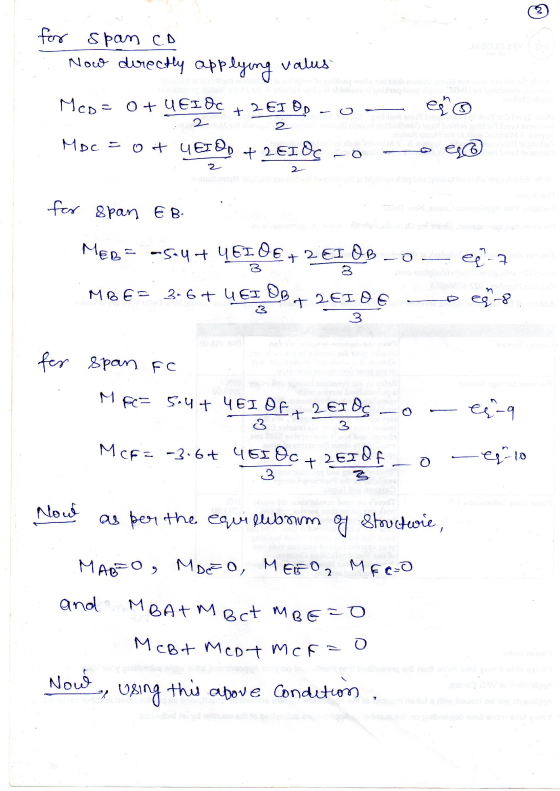 ②
for span CD
Now directly applying valus
MCD = 0 + 4EIθC/2 + 2EIθD/2 - 0 — eqⁿ ⑤
MDC = 0 + 4EIθD/2 + 2EIθC/2 - 0 → eq ⑥
for span EB.
MEB = -5.4 + 4EIθE/3 + 2EIθB/3 - 0 — eqⁿ-7
MBE = 3.6 + 4EIθB/3 + 2EIθE/3 → eqⁿ-8
for span FC
MFC = 5.4 + 4EIθF/3 + 2EIθC/3 - 0 — eqⁿ-9
MCF = -3.6 + 4EIθC/3 + 2EIθF/3 - 0 — eqⁿ-10
Now as per the equilibrium of structure,
MAB=0, MDC=0, MEB=0, MFC=0
and MBA + MBC + MBE = 0
MCB + MCD + MCF = 0
Now, using this above condition.